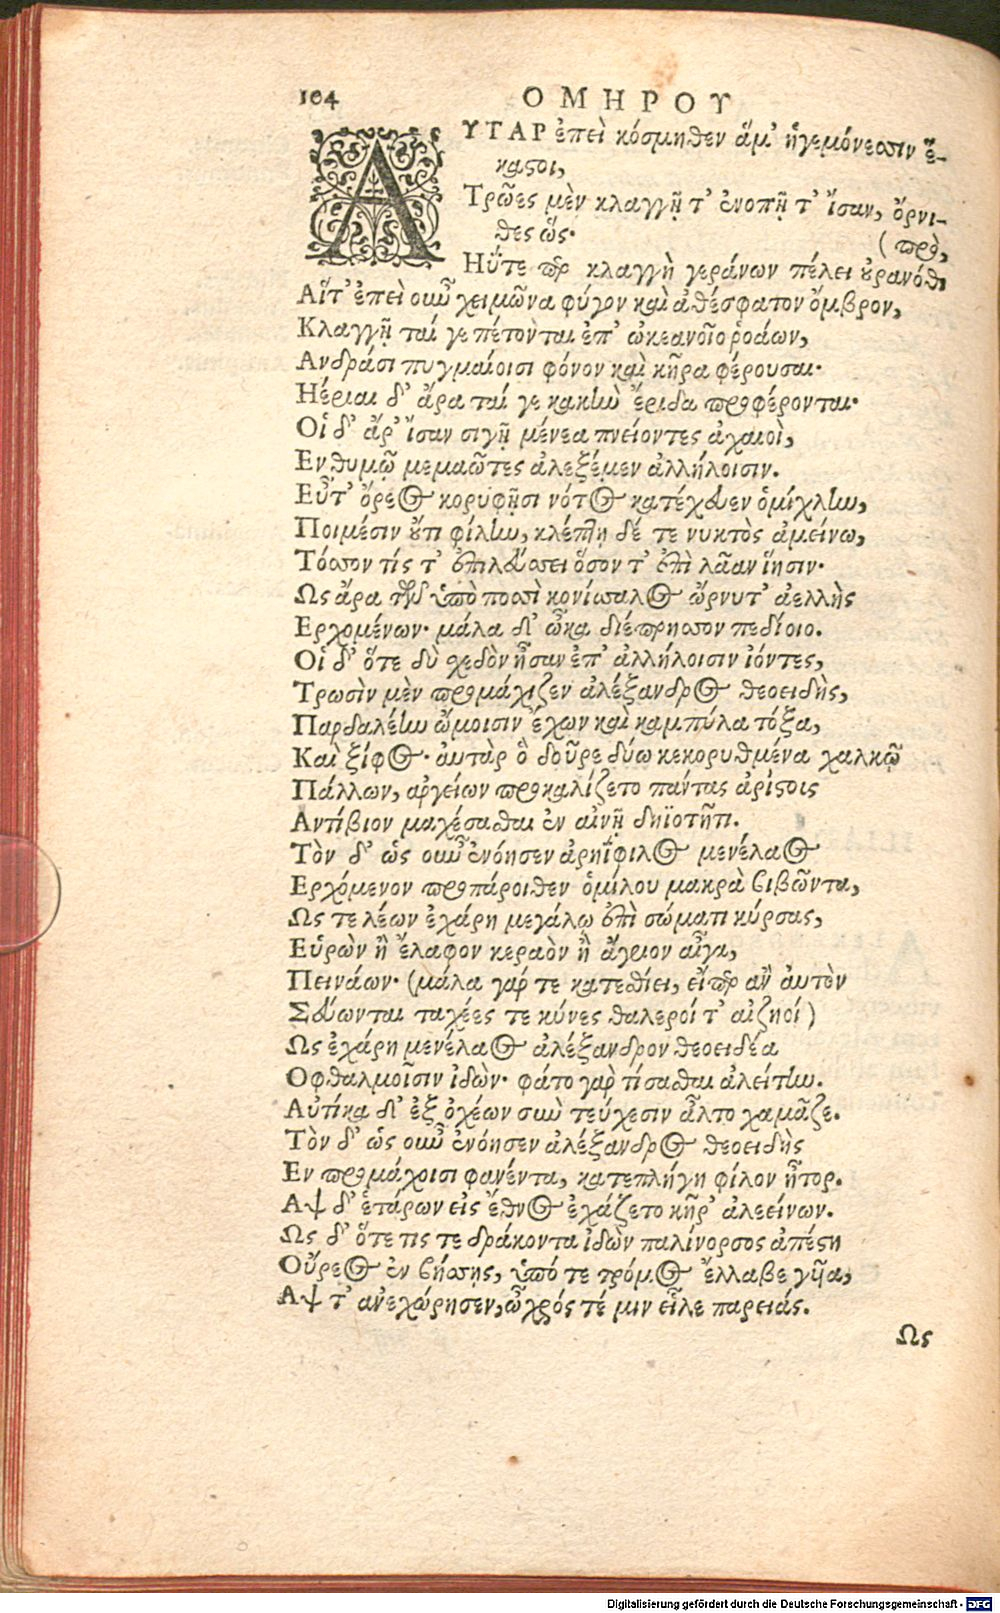 104 ΟΜΗΡΟΥ
ΑΥΤΑΡ ἐπεὶ κόσμηθεν ἅμ' ἡγεμόνεσσιν ἕ-
καστοι,
Τρῶες μὲν κλαγγῇ τ' ἐνοπῇ τ' ἴσαν, ὄρνι-
θες ὥς·
(πρό,
Ηΰτε περ κλαγγὴ γεράνων πέλει οὐρανόθι
Αἵτ' ἐπεὶ οὖν χειμῶνα φύγον καὶ ἀθέσφατον ὄμβρον,
Κλαγγῇ ταί γε πέτονται ἐπ' ὠκεανοῖο ῥοάων,
Ανδράσι πυγμαίοισι φόνον καὶ κῆρα φέρουσαι·
Ηέριαι δ' ἄρα ταί γε κακὴν ἔριδα προφέρονται·
Οἱ δ' ἄρ' ἴσαν σιγῇ μένεα πνείοντες ἀχαιοὶ,
Εν θυμῷ μεμαῶτες ἀλεξέμεν ἀλλήλοισιν.
Εὖτ' ὄρεος κορυφῇσι νότος κατέχευεν ὁμίχλην,
Ποιμέσιν οὔτι φίλην, κλέπτῃ δέ τε νυκτὸς ἀμείνω,
Τόσσον τίς τ' ἐπιλεύσσει ὅσον τ' ἐπὶ λᾶαν ἵησιν·
Ως ἄρα τῶν ὑπὸ ποσσὶ κονίσσαλος ὤρνυτ' ἀελλὴς
Ερχομένων· μάλα δ' ὦκα διέπρησσον πεδίοιο.
Οἱ δ' ὅτε δὴ σχεδὸν ἦσαν ἐπ' ἀλλήλοισιν ἰόντες,
Τρωσὶν μὲν προμάχιζεν ἀλέξανδρος θεοειδὴς,
Παρδαλέην ὤμοισιν ἔχων καὶ καμπύλα τόξα,
Καὶ ξίφος· αὐτὰρ ὃ δοῦρε δύω κεκορυθμένα χαλκῷ
Πάλλων, ἀργείων προκαλίζετο πάντας ἀρίστοις
Αντίβιον μαχέσασθαι ἐν αἰνῇ δηϊοτῆτι.
Τὸν δ' ὡς οὖν ἐνόησεν ἀρηΐφιλος μενέλαος
Ερχόμενον προπάροιθεν ὁμίλου μακρὰ βιβῶντα,
Ως τε λέων ἐχάρη μεγάλῳ ἐπὶ σώματι κύρσας,
Εὑρὼν ἢ ἔλαφον κεραὸν ἢ ἄγριον αἶγα,
Πεινάων· (μάλα γάρ τε κατεσθίει, εἴπερ ἂν αὐτὸν
Σεύωνται ταχέες τε κύνες θαλεροί τ' αἰζηοί)
Ως ἐχάρη μενέλαος ἀλέξανδρον θεοειδέα
Οφθαλμοῖσιν ἰδών· φάτο γὰρ τίσασθαι ἀλείτην.
Αὐτίκα δ' ἐξ ὀχέων σὺν τεύχεσιν ἆλτο χαμᾶζε.
Τὸν δ' ὡς οὖν ἐνόησεν ἀλέξανδρος θεοειδὴς
Εν προμάχοισι φανέντα, κατεπλήγη φίλον ἦτορ.
Αψ δ' ἑτάρων εἰς ἔθνος ἐχάζετο κῆρ' ἀλεείνων.
Ως δ' ὅτε τις τε δράκοντα ἰδὼν παλίνορσος ἀπέστη
Οὔρεος ἐν βήσσῃς, ὑπό τε τρόμος ἔλλαβε γυῖα,
Αψ τ' ἀνεχώρησεν, ὦχρός τέ μιν εἷλε παρειάς.
Ως
Digitalisierung gefördert durch die Deutsche Forschungsgemeinschaft - DFG